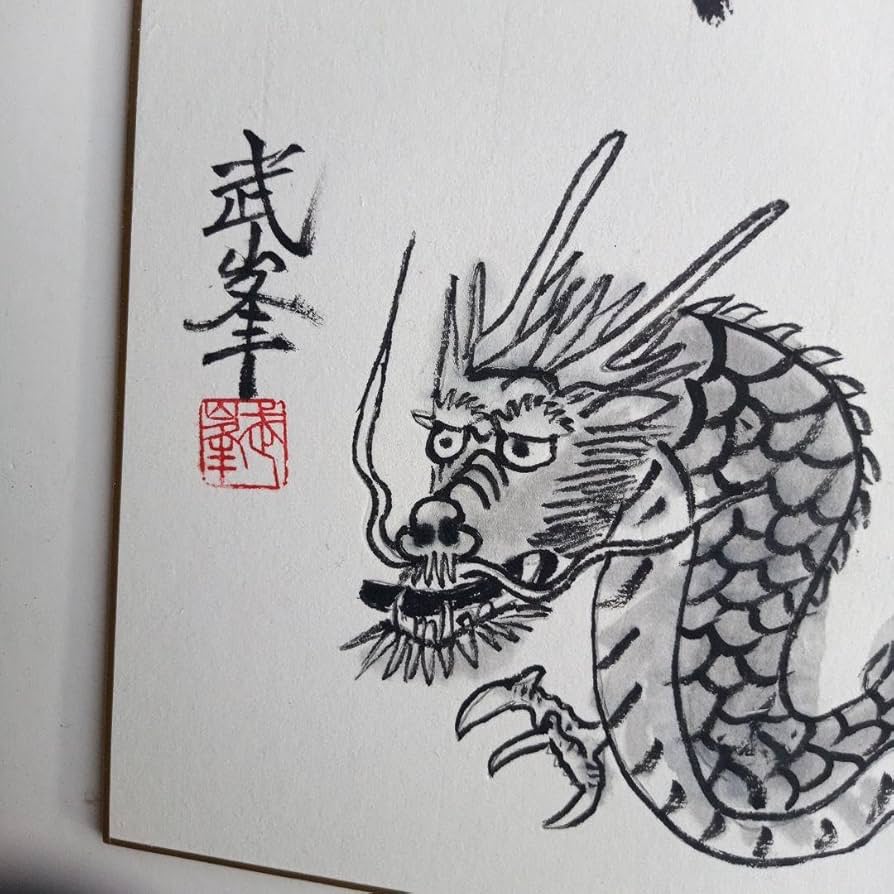 武峯
武峯